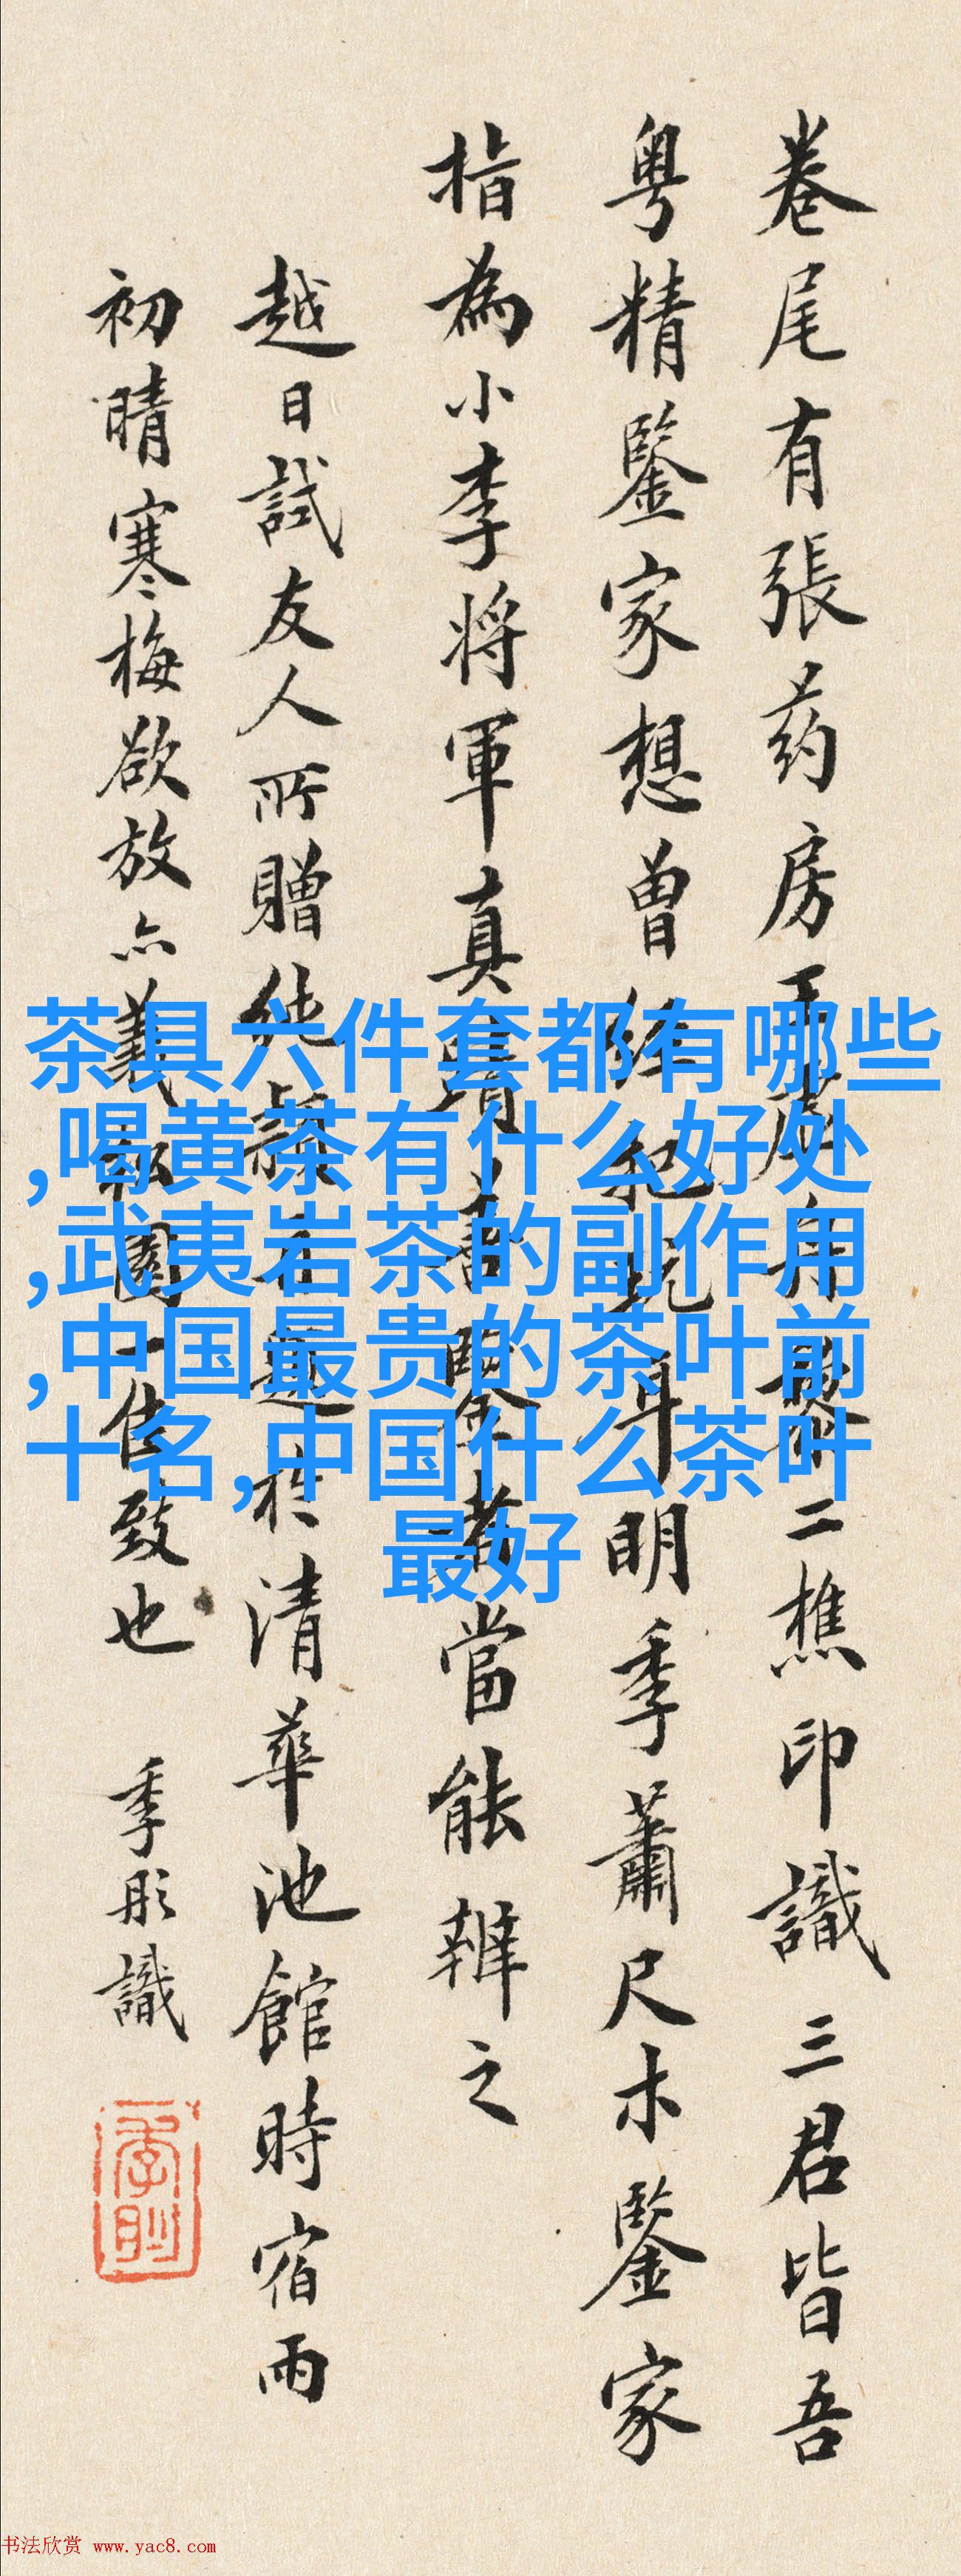 卷尾有張药房王舟二樵印識三君皆吾
粤精鑒家想曾經把玩耳明季蕭尺木鑒家
指為小李将軍真蹟善鑒者當能辨之
越日試友人所贈純於清華池館時宿雨
初晴寒梅欲放亦園一佳致也 季彤識
茶具六件套都有哪些
,喝黄茶有什么好处
,武夷岩茶的副作用
,中国最贵的茶叶前
十名,中国什么茶叶
最好
书法欣赏 www.yac8.com